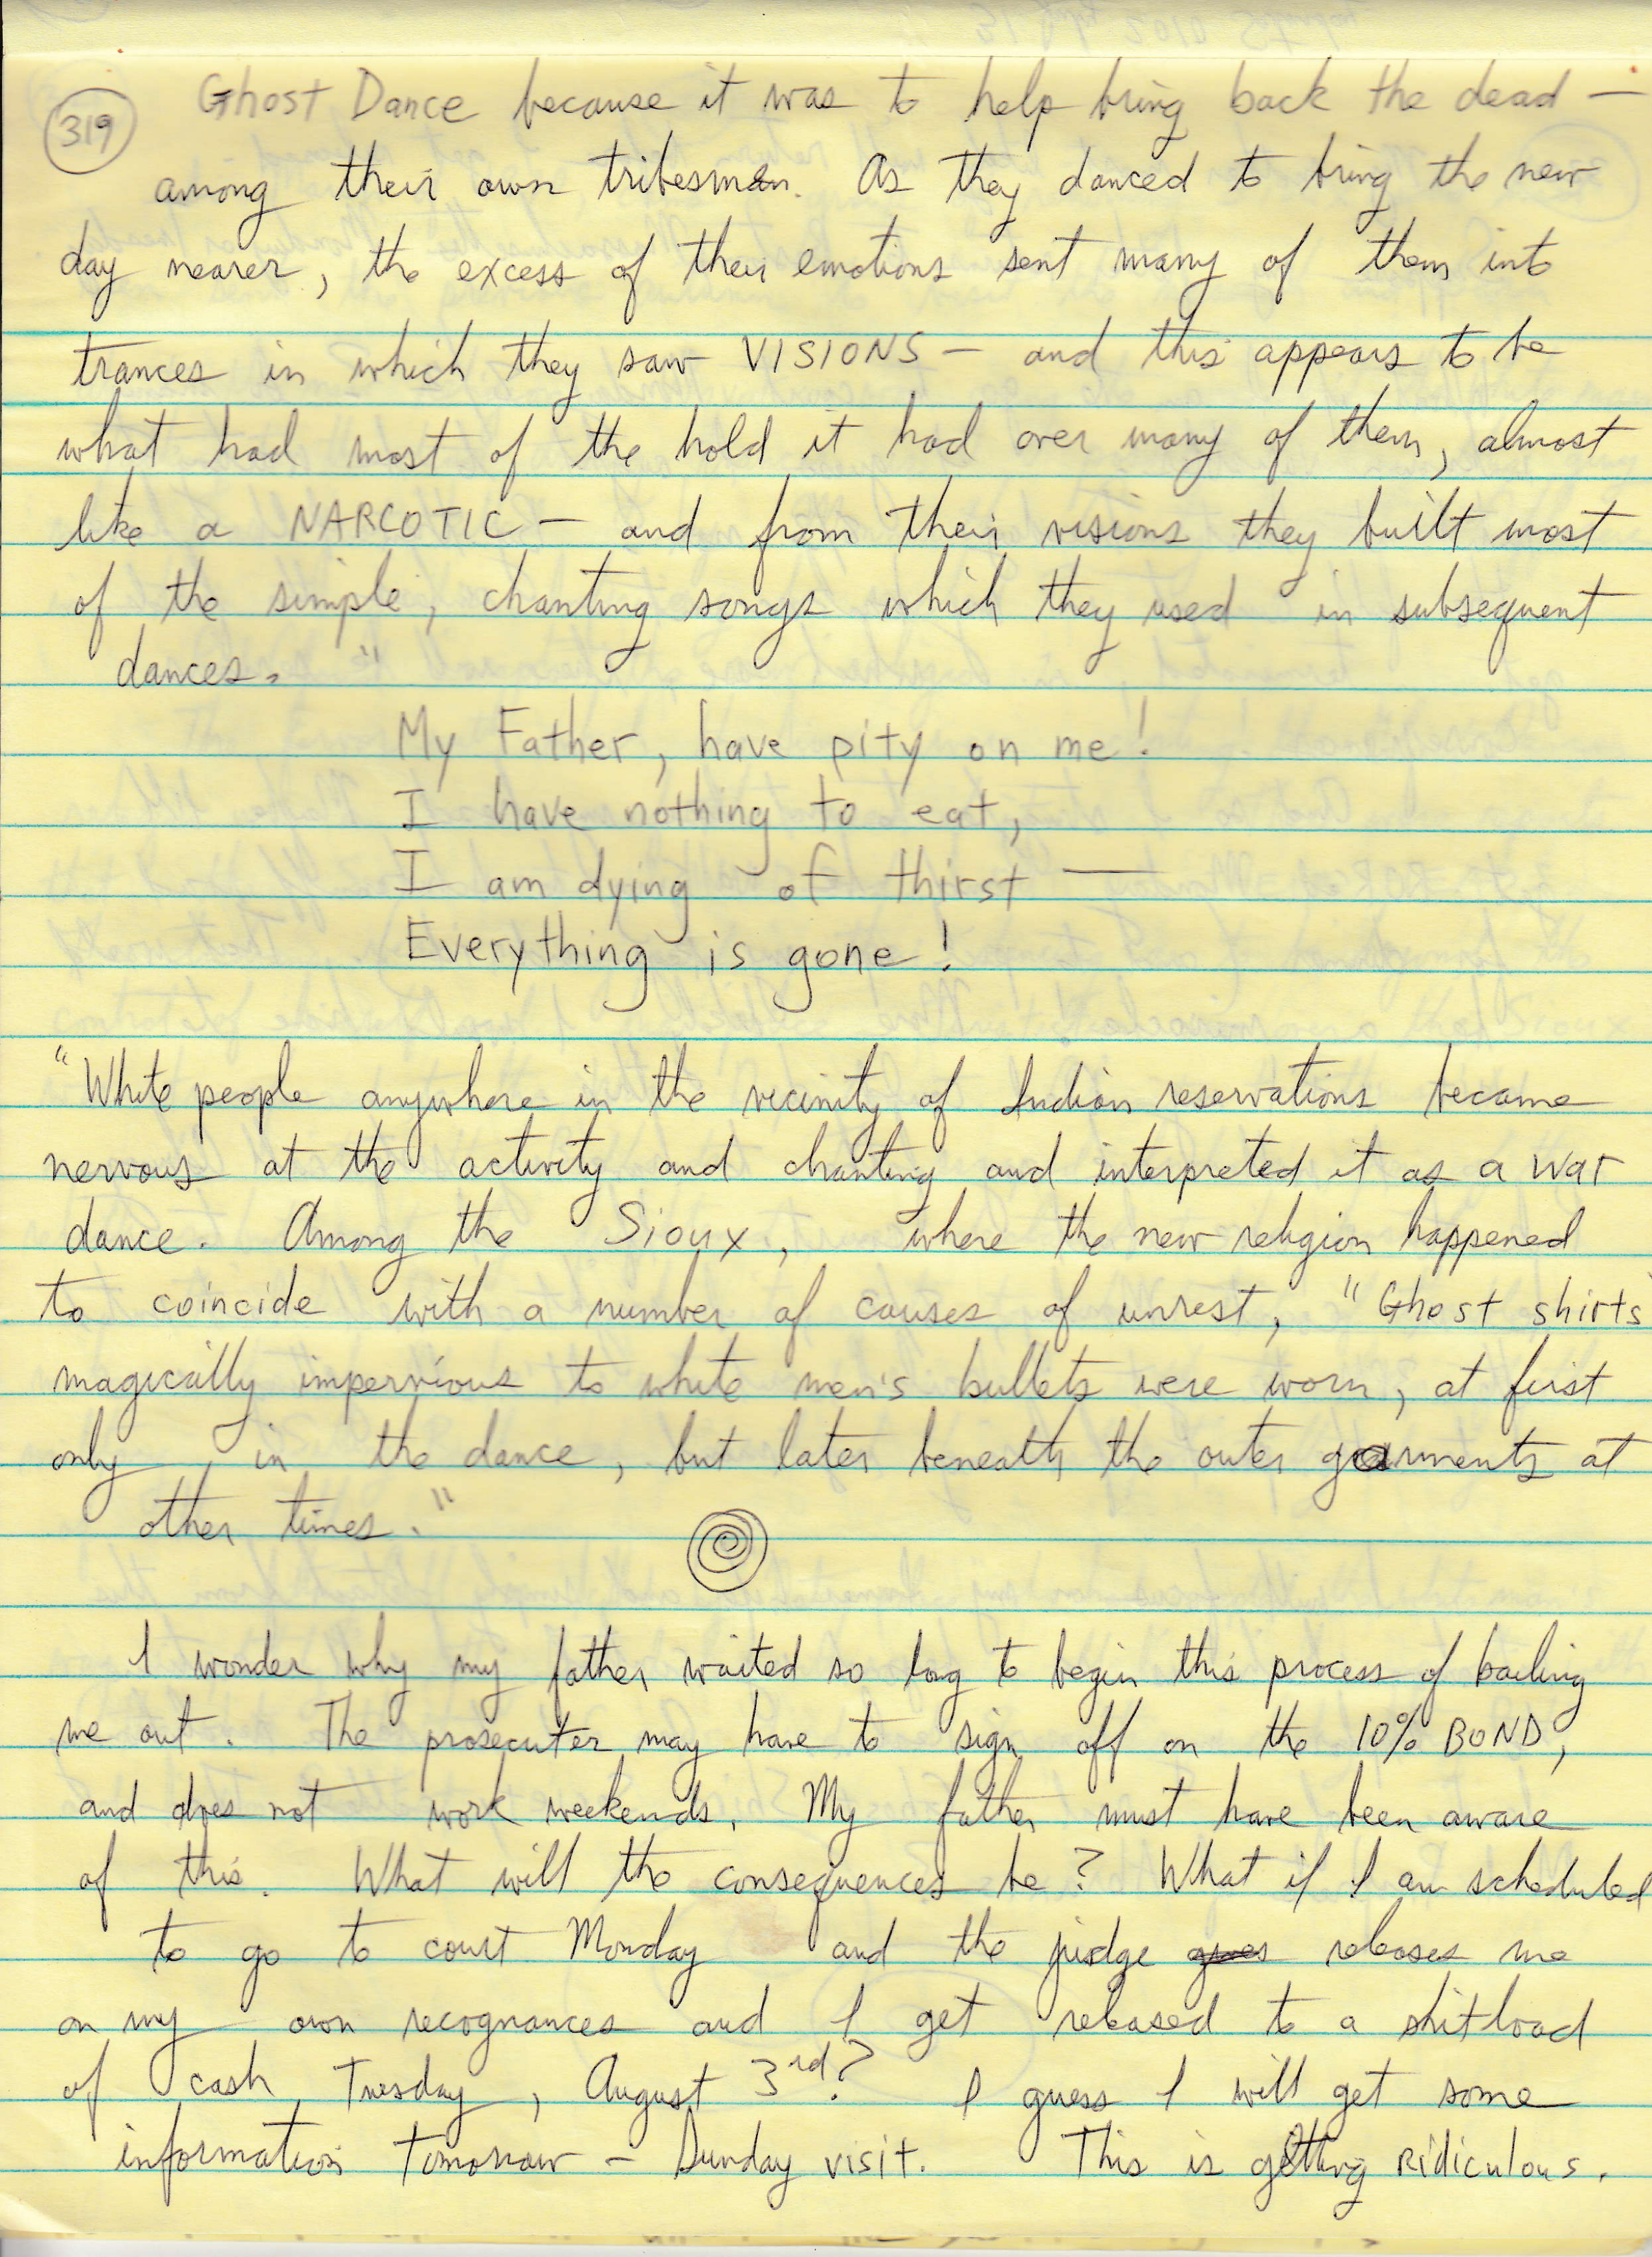 319
Ghost Dance because it was to help bring back the dead —
among their own tribesmen. As they danced to bring the new
day nearer, the excess of their emotions sent many of them into
trances in which they saw VISIONS — and this appears to be
what had most of the hold it had over many of them, almost
like a NARCOTIC — and from their visions they built most
of the simple, chanting songs which they used in subsequent
dances."
My Father, have pity on me!
I have nothing to eat,
I am dying of thirst —
Everything is gone!
"White people anywhere in the vicinity of Indian reservations became
nervous at the activity and chanting and interpreted it as a war
dance. Among the Sioux, where the new religion happened
to coincide with a number of causes of unrest, "Ghost shirts"
magically impervious to white men's bullets were worn, at first
only in the dance, but later beneath the outer garments at
other times."
I wonder why my father waited so long to begin this process of bailing
me out. The prosecuter may have to sign off on the 10% BOND,
and does not work weekends. My father must have been aware
of this. What will the consequences be? What if I am scheduled
to go to court Monday and the judge releases me
on my own recognances and I get released to a shitload
of cash, Tuesday, August 3rd? I guess I will get some
information tomorrow – Sunday visit. This is getting Ridiculous.